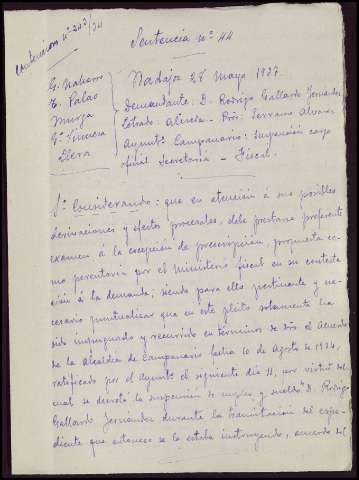 Contencioso nº 203/34
Sentencia nº 44
Badajoz 28 Mayo 1937.
G. Naharro
E. Palao
Murga
Gª Viniegra
Llera
Demandante: D. Rodrigo Gallardo Fernández
Letrado: Alcreda - Pror: Serrano Alvarez
Ayuntº Campanario: suspensión cargo
oficial Secretaría - Fiscal.
1º Considerando: que en atención á sus posibles
derivaciones y efectos procesales, debe prestarse preferente
examen á la excepción de prescripción, propuesta co-
mo perentoria por el Ministerio fiscal en su contesta
ción á la demanda; siendo para ello pertinente y ne-
cesario puntualizar que en este pleito solamente ha
sido impugnado y recurrido en términos de el Acuerdo
de la Alcaldía de Campanario fecha 10 de Agosto de 1934,
ratificado por el Ayuntº el siguiente dia 11, por virtud del
cual se decretó la suspensión de empleo y sueldo D. Rodrigo
Gallardo Fernández durante la tramitación del expe-
diente que entonces se le estaba instruyendo, acuerdo del